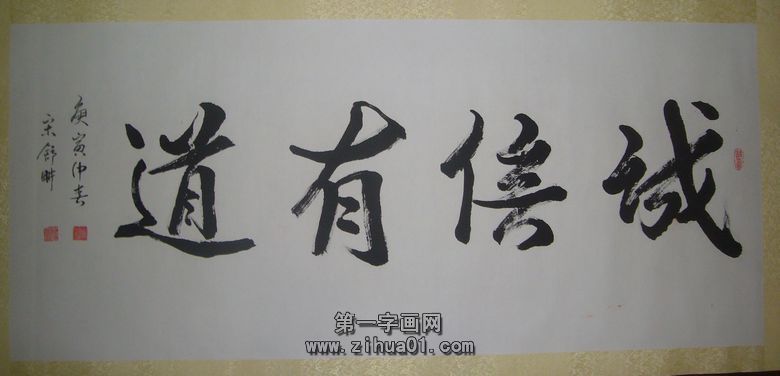 誠信有道
庚寅仲春
宋舒畊
第一字画网
www.zihua01.com